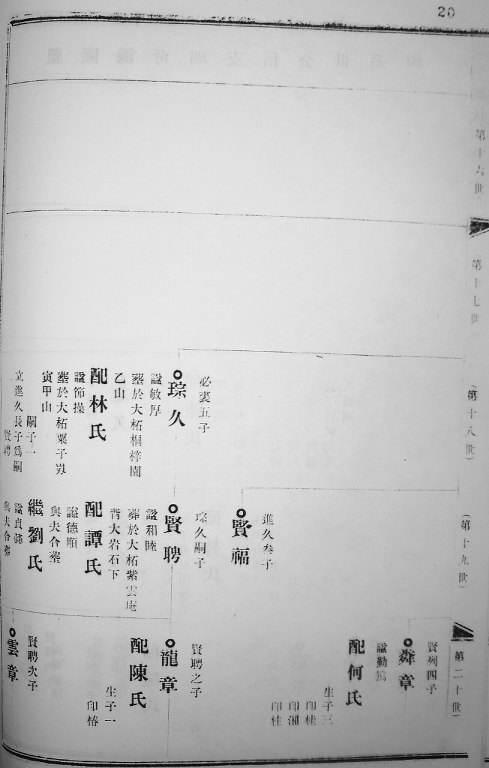 20
第十六世
第十七世
第十八世
必裘五子
琮久
諡敏厚
塟於大柘桐梓園
乙山
配林氏
諡節操
塟於大柘粟子㘭
寅甲山
嗣子一
賢聘
立進久長子爲嗣
第十九世
進久叁子
賢福
琮久嗣子
賢聘
諡和睦
葬於大柘紫雲庵
背大岩石下
配譚氏
諡德順
與夫合塟
繼劉氏
與夫合塟
第二十世
賢列四子
章
諡勤篤
配何氏
生子三
印桂
印湘
印桂
賢聘之子
龍章
配陳氏
生子一
印椿
賢聘次子
雲章